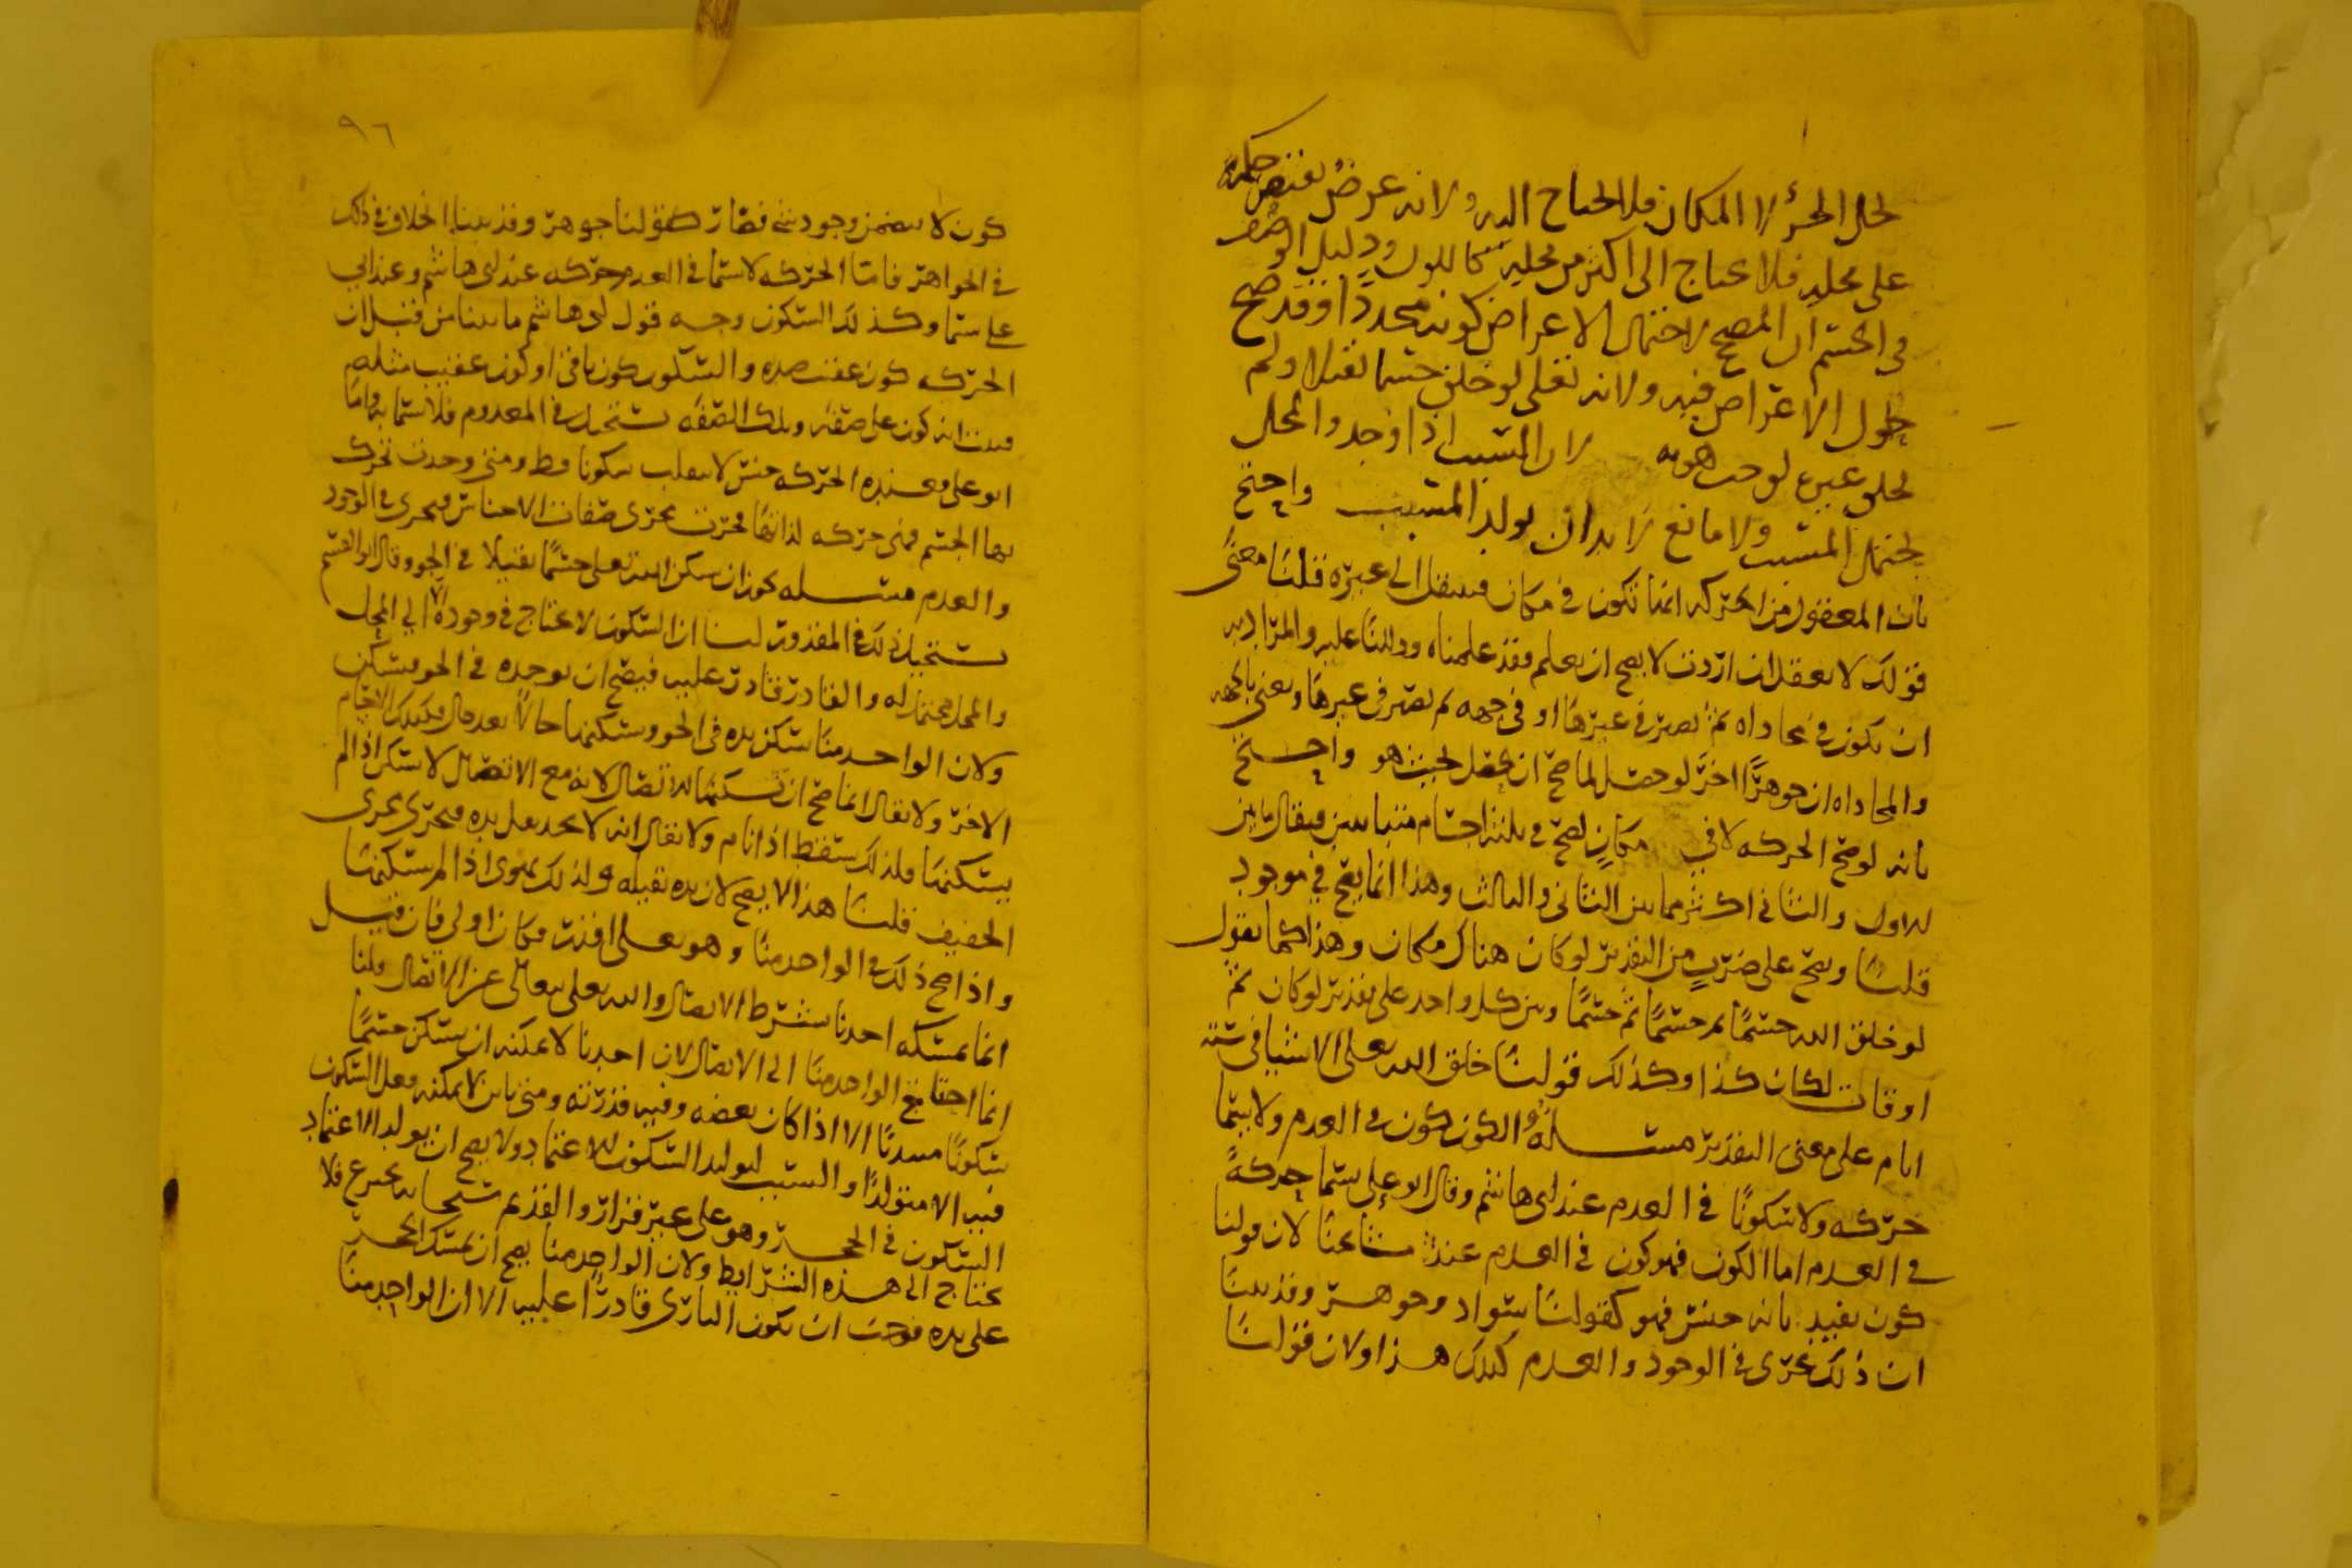 لحل الجزء لا المكان فلا احتاج اليه ولانه عرض يقتضي حكمه
على محله فلا يحتاج الى اكثر من محله كاللون ودليل الوصف
في الجسم ان المصحح لاحتمال الاعراض كونه محددا فقد صح
حلول الاعراض فيه ولانه تعلى لو خلق جسما ثقيلا ولم
يخلق غيره لوجب هويه لان المسبب اذا وجد والمحل
يحتمل المسبب ولا مانع لا بد ان يولد المسبب واحتج
بان المعقول من الحركه انما تكون في مكان فينتقل الى غيره قلنا معنى
قولك لا يعقل ان اردت لا يصح ان يعلم فقد علمناه ودللنا عليه والمراد به
ان يكون في محاذاه ثم يصير في غيرها او في جهه ثم يصير في غيرها ونعني بالجهه
والمحاذاه ان جوهرا اخر لو حصل لما صح ان يحصل بحيث هو واحتج
بانه لو صح الحركه لا في مكان لصح في ثلثه اجسام متباينين فيقال ما بين
الاول والثاني اكثر مما بين الثاني والثالث وهذا انما يصح في موجود
قلنا ويصح على ضرب من التقدير لو كان هناك مكان وهذا كما نقول
لو خلق الله جسما ثم جسما ثم جسما وبين كل واحد على تقدير لو كان ثم
اوقات لكان كذا وكذلك قولنا خلق الله تعلى الاشيا في سته
ايام على معنى التقدير مسله والكون كون في العدم ولا يسما
حركه ولا سكونا في العدم عند ابي هاشم وقال ابو علي يسما حركه
في العدم اما الكون فهو كون في العدم عند مشايخنا لان قولنا
كون يفيد بانه جنس فهو كقولنا سواد وجوهر وقد بينا
ان ذلك يجري في الوجود والعدم كذلك هذا ولان قولنا
٩٦
كون لا يتضمن وجود شي فصار كقولنا جوهر وقد بينا الخلاف في ذلك
في الجواهر فاما الحركه لا يسما في العدم حركه عند ابي هاشم وعند ابي
علي يسما وكذلك السكون وجه قول ابي هاشم ما بينا من قبل ان
الحركه كون عقيب ضده والسكون كون باقي او كون عقيب مثله
فبينا انه كون على صفه وتلك الصفه تستحيل في المعدوم فلا يسما به واما
ابو علي فعنده الحركه جنس لا ينقلب سكونا قط ومتى وجدت تحرك
بها الجسم فهي حركه لذاتها فجرت مجرى صفات الاجناس فيجري في الوجود
والعدم مسله يجوز ان يسكن الله تعلى جسما ثقيلا في الجو وقال ابو القسم
يستحيل ذلك في المقدور لنا ان السكون لا يحتاج في وجوده الا الى المحل
والمحل محتمل له والقادر قادر عليه فيصح ان يوجده في الجو فيسكن
ولان الواحد منا يسكن يده في الجو ويسكنها حالا بعد حال فكذلك الاجسام
الاخر ولا يقال انما صح ان نسكنها للاتصال لانه مع الاتصال لا تسكن اذا لم
يسكنها ولذلك تسقط اذا نام ولا يقال انه لا يجد ثقل يده فيجري مجرى
الخفيف قلنا هذا لا يصح لان يده ثقيله ولذلك تهوى اذا لم يسكنها
واذا صح ذلك في الواحد منا وهو تعلى اقدر فكان اولى فان قيل
انما يمسكه احدنا بشرط الاتصال والله تعلى يتعالى عن الاتصال قلنا
انما احتاج الواحد منا الى الاتصال لان احدنا لا يمكنه ان يسكن جسما
سكونا مبتدئا الا اذا كان بعضه وفيه قدرته ومتى باين لا يمكنه فعل السكون
فيه الا متولدا والسبب لتوليد السكون الاعتماد ولا يصح ان يولد الاعتماد
السكون في الحجر وهو على غير قرار والقديم سبحانه يخترع فلا
يحتاج الى هذه الشرايط ولان الواحد منا يصح ان يمسك الحجر
على يده فوجب ان يكون الباري قادرا عليه الا ان الواحد منا